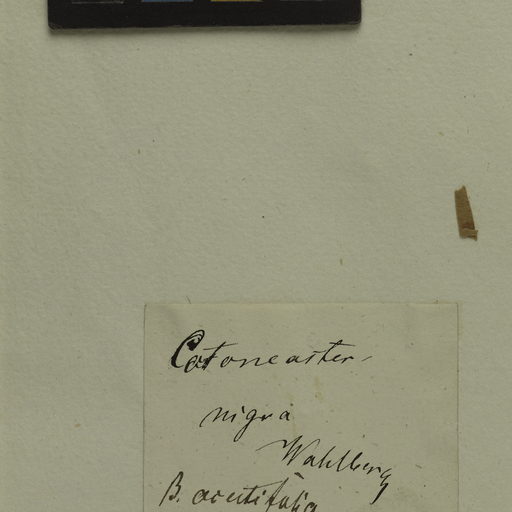 Cotoneaster
nigra
Wahlberg
B. acutifolia